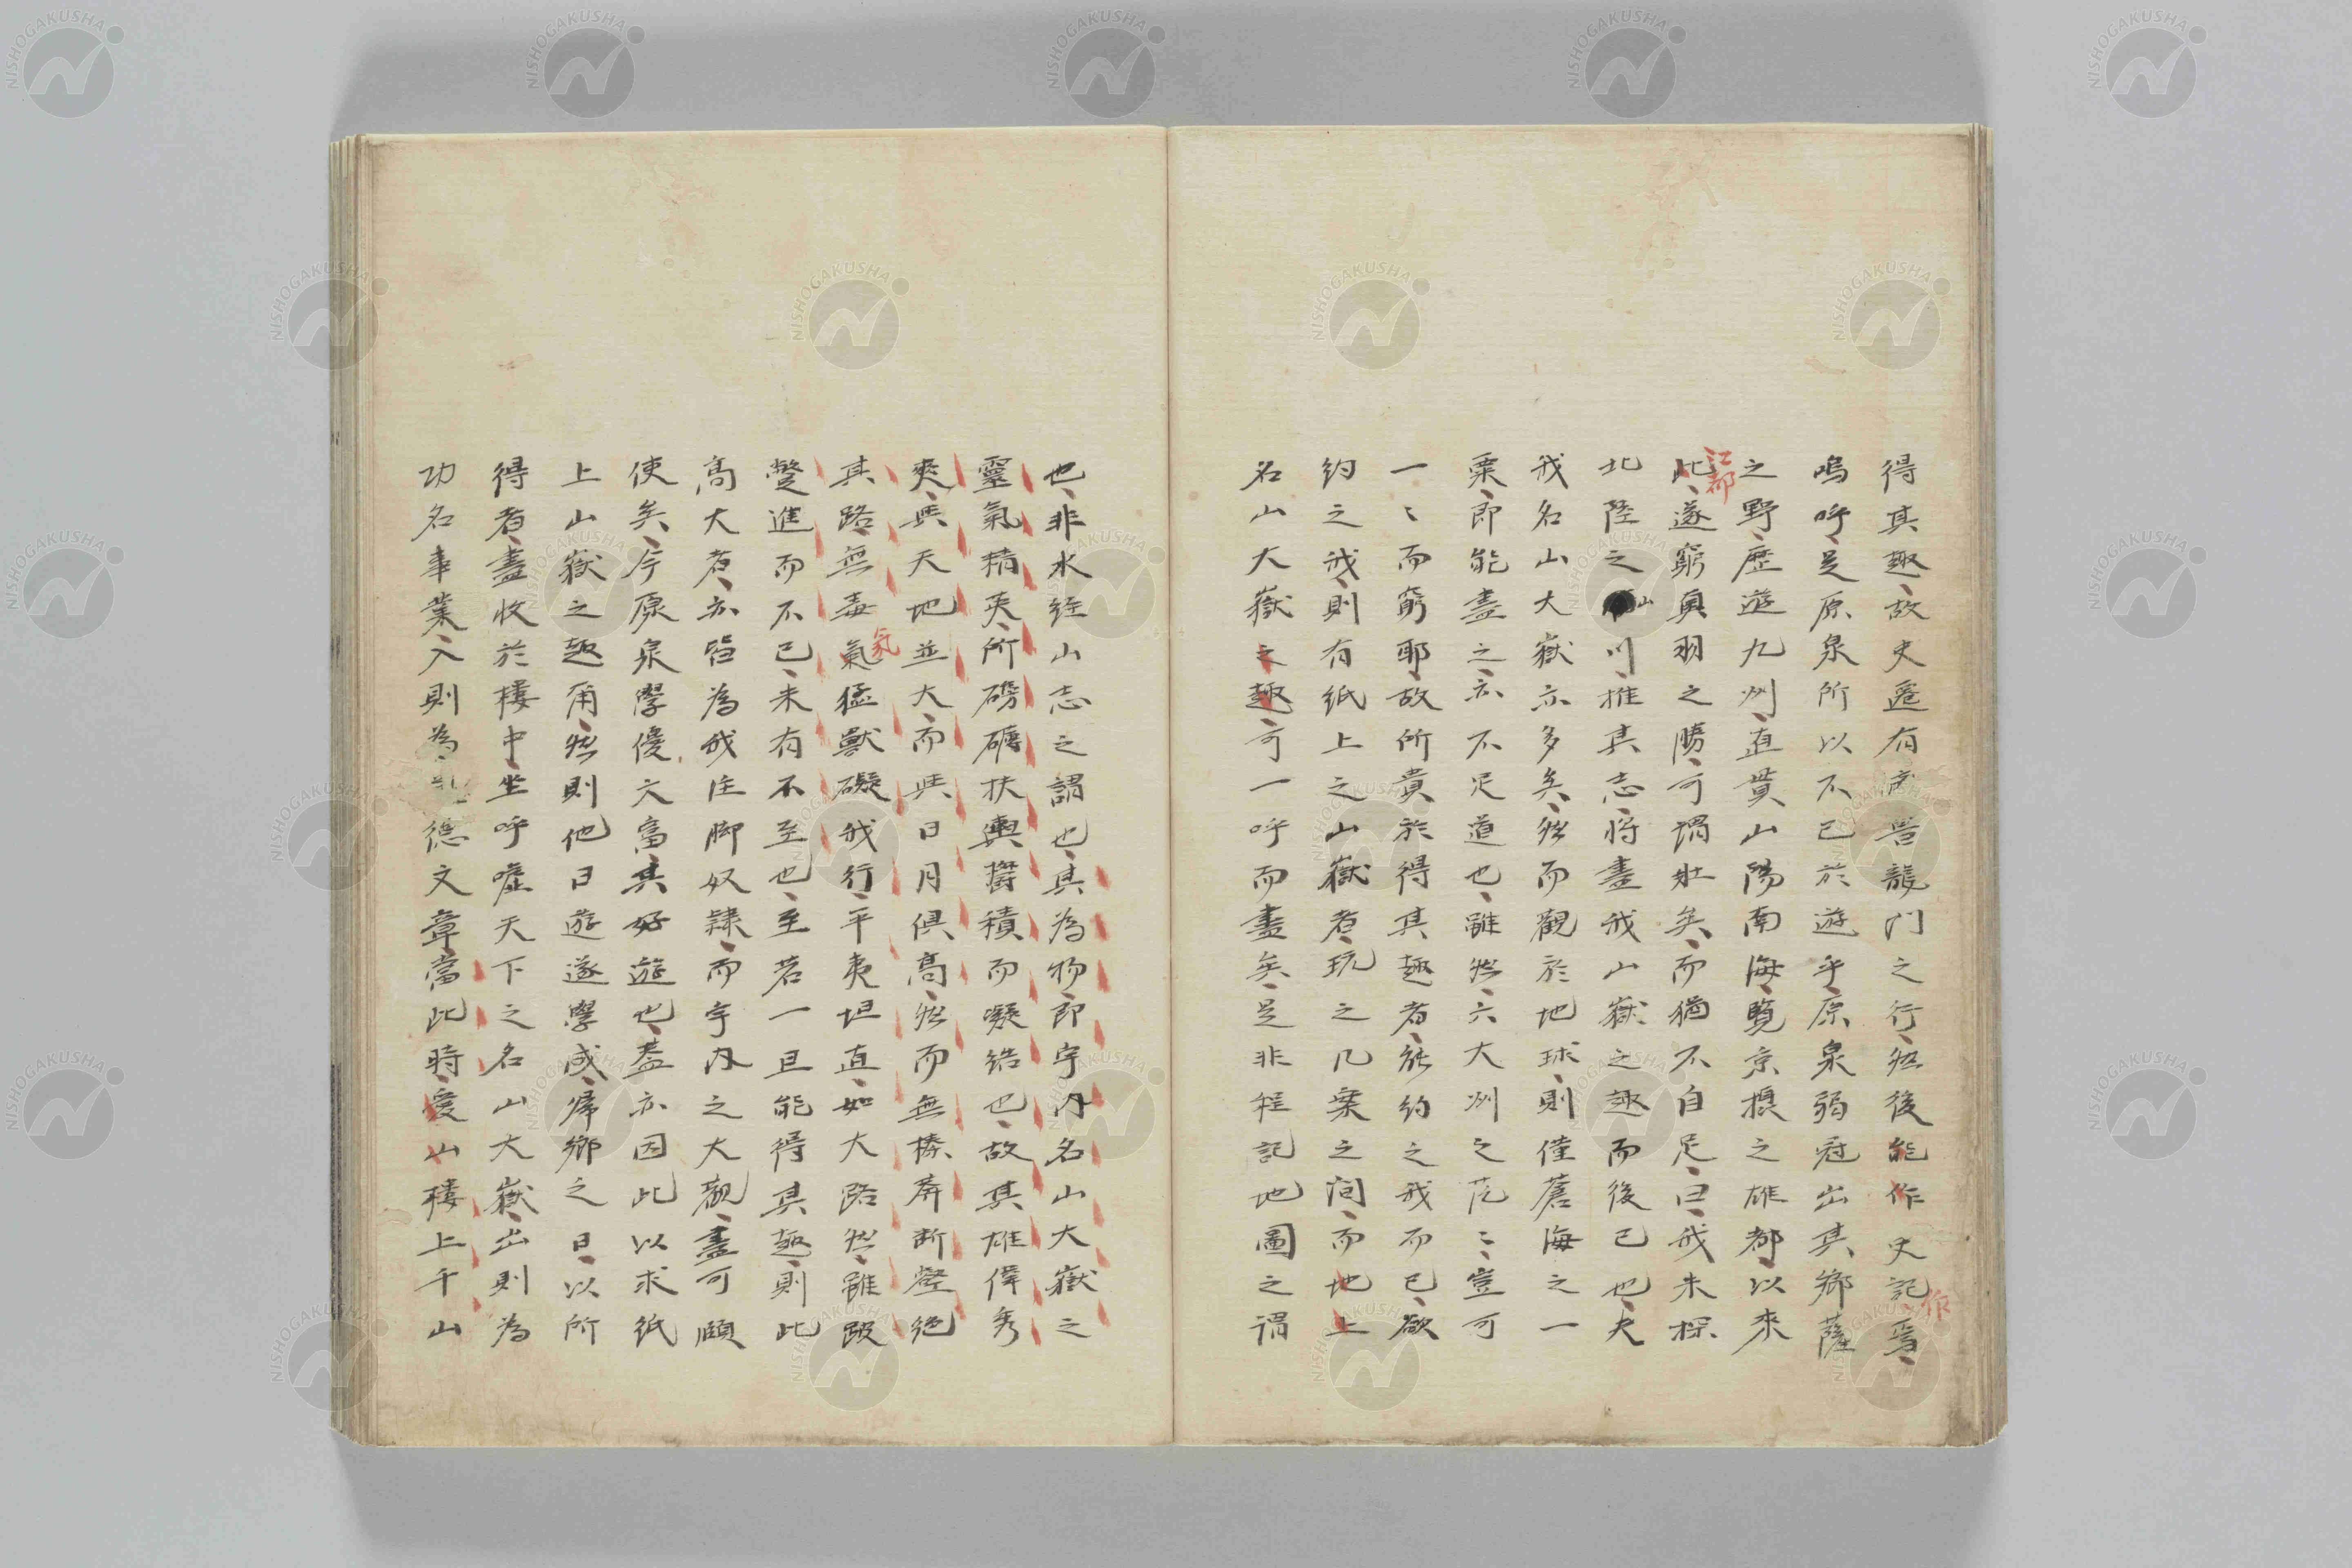 得其趣、故史遷有登龍門之行、然後能作史記焉、
嗚呼、是原泉所以不已於遊乎、原泉弱冠出其鄉薩
之野、歷遊九州、直貫山陽南海、覽京摂之雄都、以来
此、遂窮奥羽之勝、可謂壯矣、而猶不自足、曰、我未探
江都
北陸之山川、推其志、将盡我山嶽之趣而後已也、夫
我名山大嶽亦多矣、然而觀於地球、則僅蒼海之一
粟、即能盡之、亦不足道也、雖然、六大州之茫〻、豈可
一〻而窮耶、故所貴於得其趣者、能約之我而已、欲
約之我、則有紙上之山嶽者、玩之几案之间、而地上
名山大嶽之趣、可一呼而盡矣、是非程記地圖之謂
作
也、非水經山志之謂也、其為物、即宇内名山大嶽之
靈氣精英、所磅礴扶輿、蓄積而凝結也、故其雄偉秀
爽、與天地並大、而與日月倶高、然而無榛莽断壑絶
其路、無毒氣猛獣礙我行、平夷坦直、如大路然、雖跛
氣
躄進而不已、未有不至也、至若一旦能得其趣、則此
高大者、亦皆為我注脚奴隷、而宇内之大觀、盡可頤
使矣、今原泉學優文富、其好遊也、蓋亦因此以求紙
上山嶽之趣爾、然則他日遊遂學成、帰郷之日、以所
得者、盡收於樓中、坐呼嘘天下之名山大嶽、出則為
功名事業、入則為道德文章、當此時、愛山樓上千山